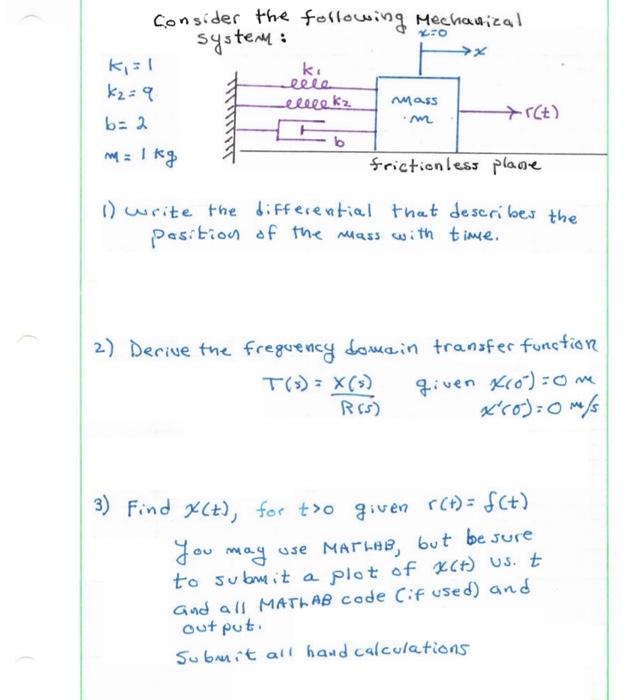 Consider the following Mechanical
system:
x=0
x
k₁ = 1
k₂ = 9
b = 2
m = 1 kg
k₁
k₂
b
Mass
m
r(t)
frictionless plane
1) write the differential that describes the
position of the mass with time.
2) Derive the frequency domain transfer function
T(s) = X(s)/R(s) given x(0⁻) = 0 m
x'(0⁻) = 0 m/s
3) Find x(t), for t>0 given r(t) = δ(t)
You may use MATLAB, but be sure
to submit a plot of x(t) vs. t
and all MATLAB code (if used) and
output.
Submit all hand calculations